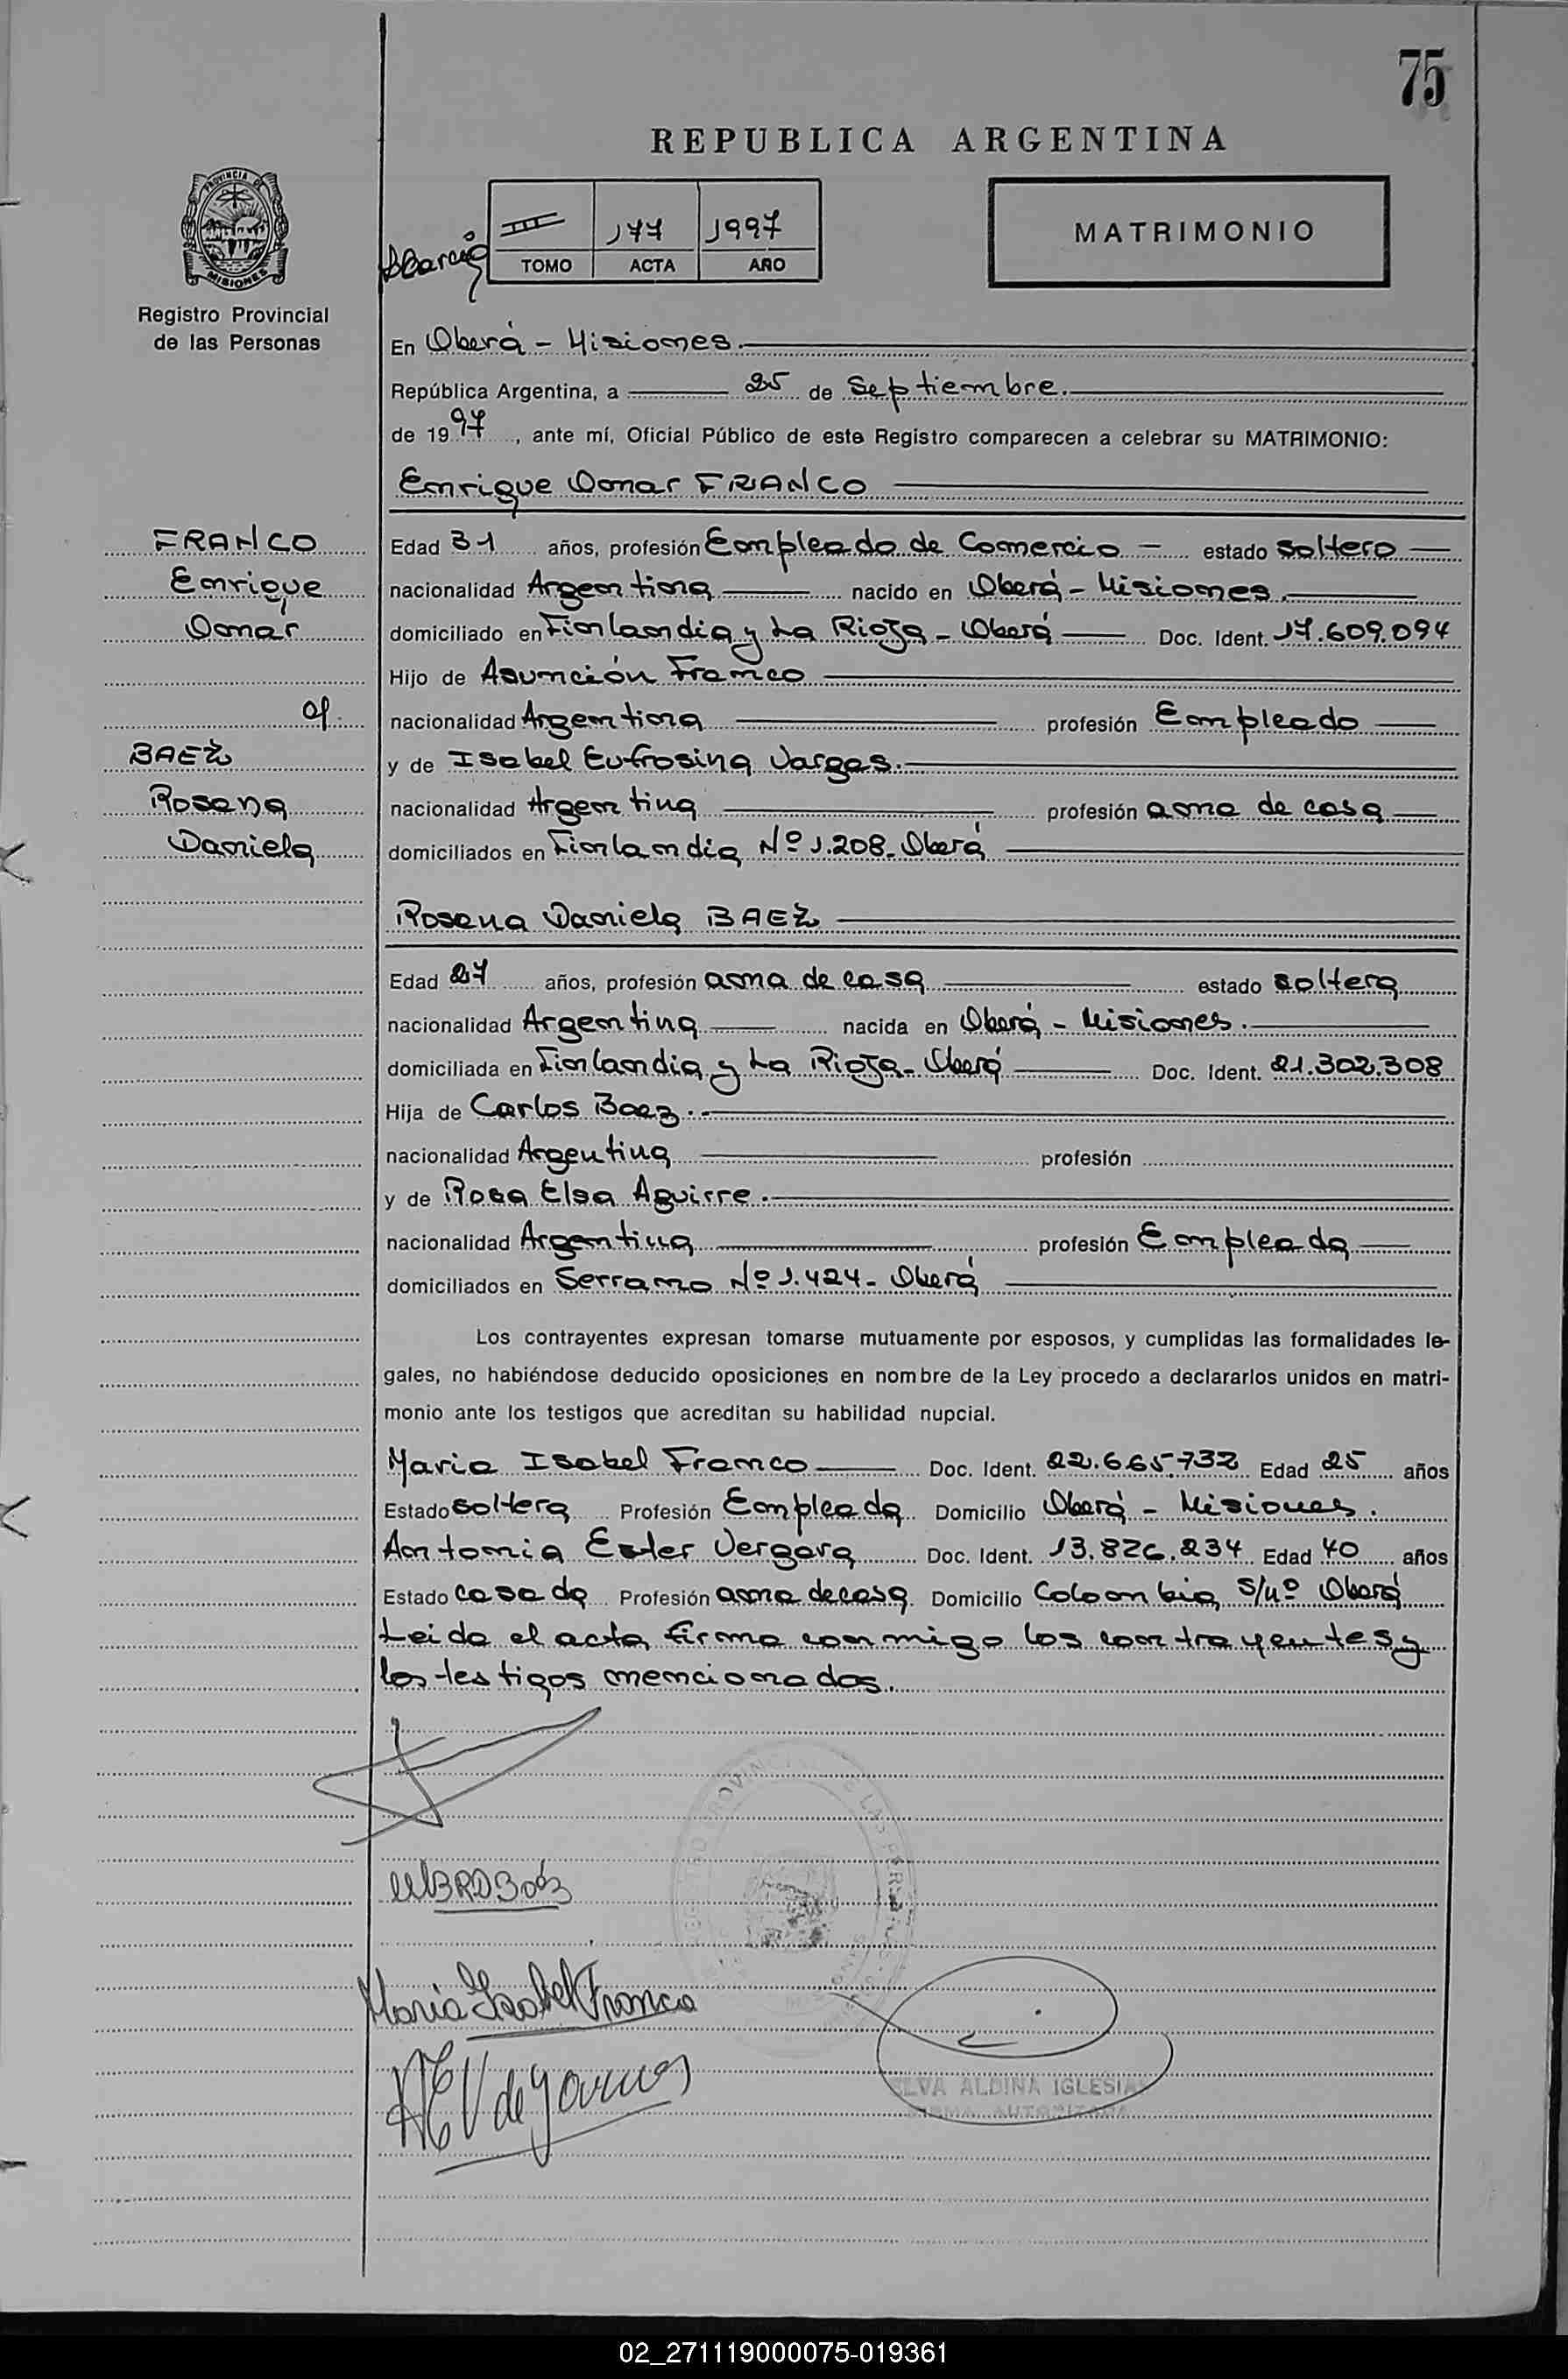 75
REPUBLICA ARGENTINA
III 177 1997
TOMO ACTA AÑO
MATRIMONIO
PROVINCIA DE
MISIONES
Registro Provincial
de las Personas
En Oberá - Misiones.
República Argentina, a 25 de Septiembre.
de 1997, ante mí, Oficial Público de este Registro comparecen a celebrar su MATRIMONIO:
Enrique Omar FRANCO
FRANCO
Enrique
Omar
BAEZ
Rosana
Daniela
Edad 31 años, profesión Empleado de Comercio - estado soltero
nacionalidad Argentina nacido en Oberá - Misiones.
domiciliado en Finlandia y La Rioja - Oberá Doc. Ident. 17.609.094
Hijo de Asunción Franco
nacionalidad Argentina profesión Empleado
y de Isabel Eufrosina Vargas.
nacionalidad Argentina profesión ama de casa
domiciliados en Finlandia Nº 1.208 - Oberá
Rosana Daniela BAEZ
Edad 27 años, profesión ama de casa estado soltera
nacionalidad Argentina nacida en Oberá - Misiones.
domiciliada en Finlandia y La Rioja - Oberá Doc. Ident. 21.302.308
Hija de Carlos Baez.-
nacionalidad Argentina profesión
y de Rosa Elsa Aguirre.
nacionalidad Argentina profesión Empleada
domiciliados en Serrano Nº 1.424 - Oberá
Los contrayentes expresan tomarse mutuamente por esposos, y cumplidas las formalidades le-
gales, no habiéndose deducido oposiciones en nombre de la Ley procedo a declararlos unidos en matri-
monio ante los testigos que acreditan su habilidad nupcial.
Maria Isabel Franco Doc. Ident. 22.665.732 Edad 25 años
Estado soltera Profesión Empleada Domicilio Oberá - Misiones.
Antonia Ester Vergara Doc. Ident. 13.826.234 Edad 40 años
Estado casada Profesión ama de casa. Domicilio Colombia S/nº Oberá
Leida el acta, firma conmigo los contrayentes y
los testigos mencionados.
Maria Isabel Franco
ELVA ALDINA IGLESIAS
FIRMA AUTORIZADA
02_271119000075-019361